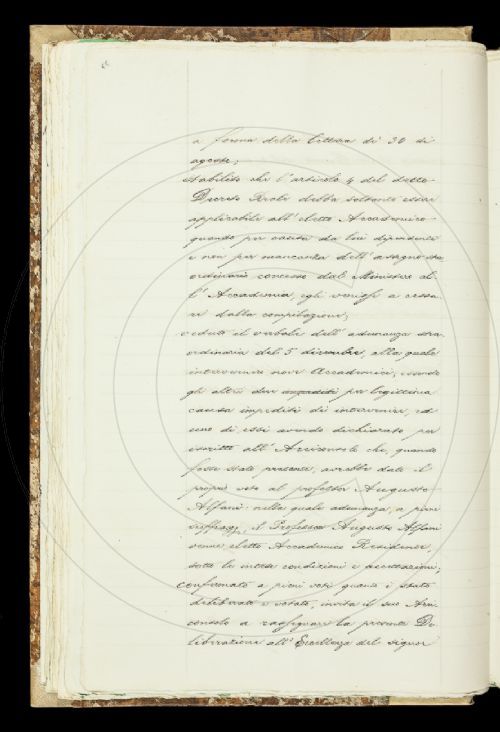 a forma della lettera di 30 di
agosto;
stabilito che l'articolo 4 del detto
Decreto Reale debba soltanto esser
applicabile all'eletto Accademico
quando per causa da lui dipendente
e non per mancanza dell'assegno stra
ordinario concesso dal Ministero al
l'Accademia, egli venisse a cessa
re dalla compilazione;
veduto il verbale dell'adunanza stra
ordinaria del 5 dicembre, alla quale
intervennero nove Accademici, essendo
gli altri due impediti per legittima
causa impediti di intervenire ed
uno di essi avendo dichiarato per
iscritto all'Arciconsolo che, quando
fosse stato presente, avrebbe dato il
proprio voto al professor Augusto
Alfani: nella quale adunanza, a pieni
suffragi, il Professore Augusto Alfani
venne eletto Accademico Residente,
sotto le intese condizioni e accettazioni,
confermato a pieni voti quanto è stato
deliberato e votato, invita il suo Arci
consolo a rassegnare la presente De
liberazione all'Eccellenza del signor